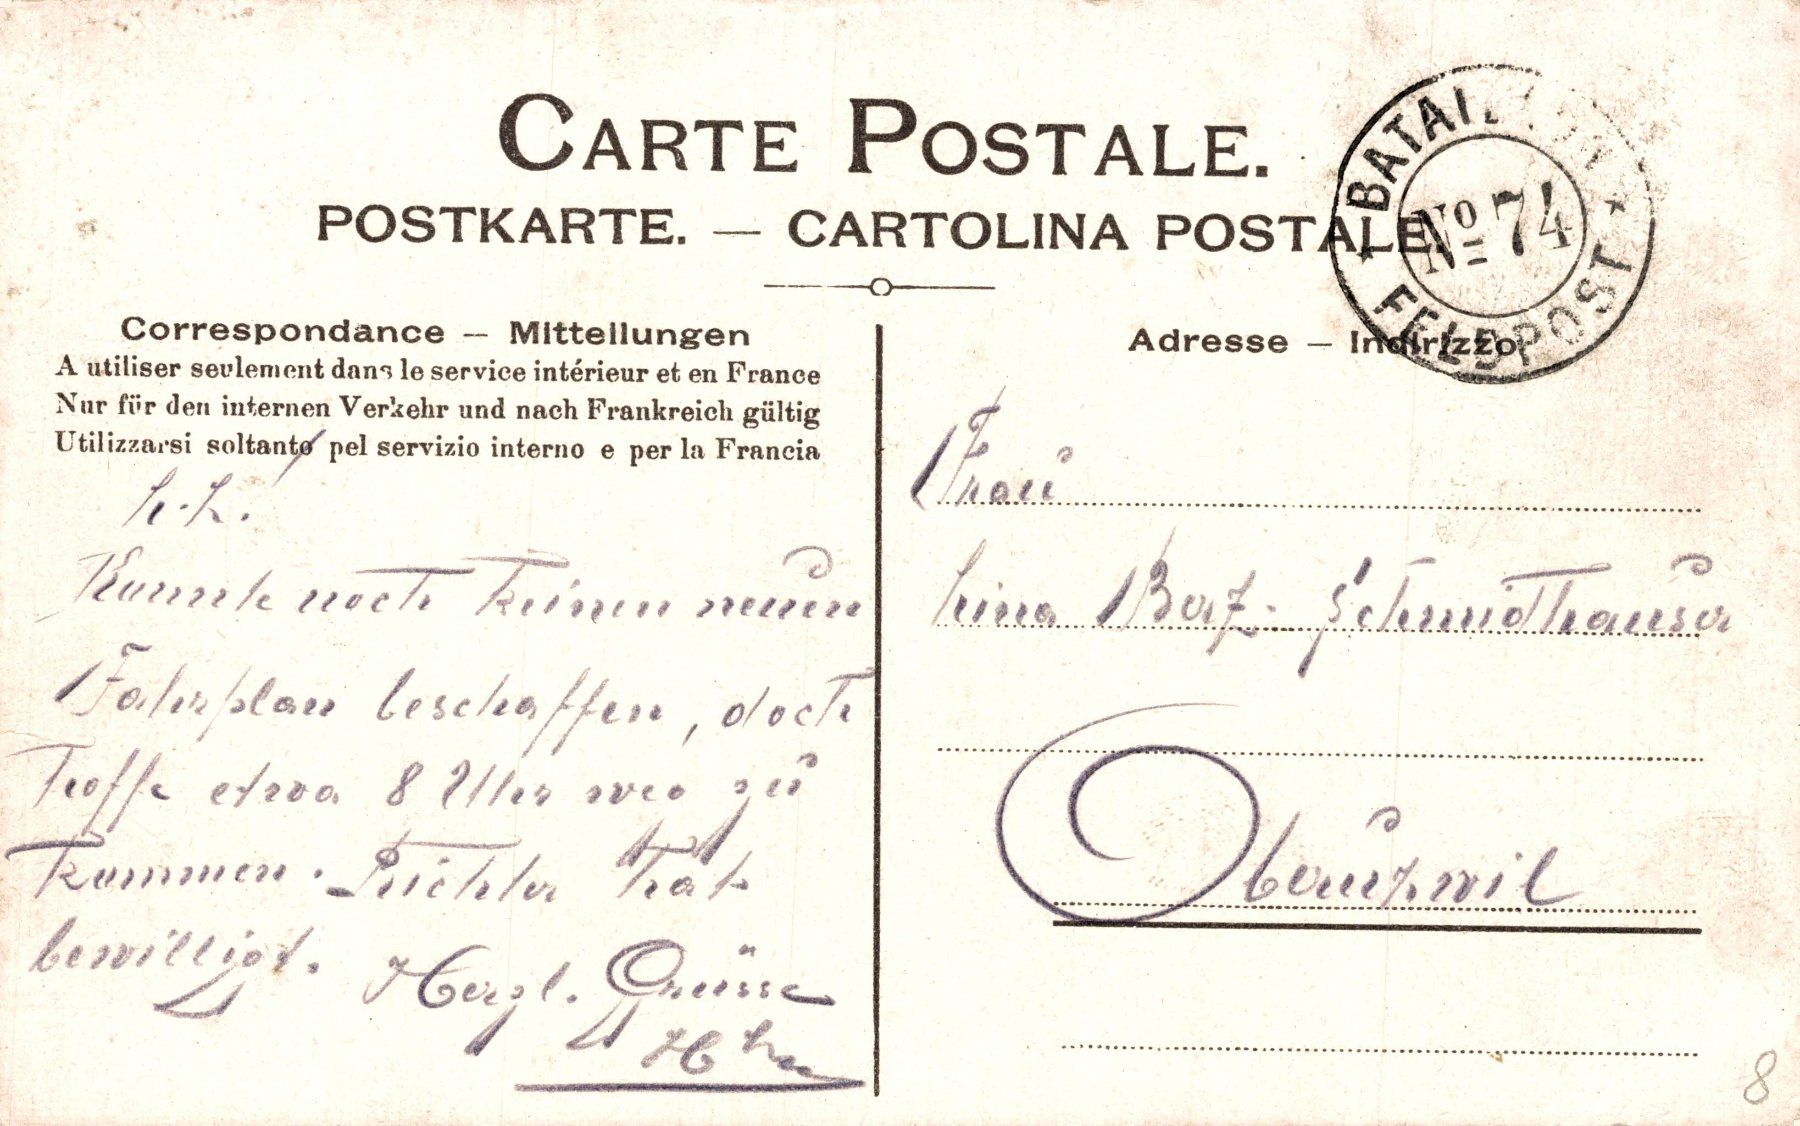 CARTE POSTALE.
POSTKARTE. — CARTOLINA POSTALE.
BATAILLON
No 74
FELDPOST
Correspondance — Mitteilungen
A utiliser seulement dans le service intérieur et en France
Nur für den internen Verkehr und nach Frankreich gültig
Utilizzarsi soltanto pel servizio interno e per la Francia
L. L.!
Konnte noch keinen neuen
Fahrplan beschaffen, doch
hoffe etwa 8 Uhr weg zu
kommen. Richter hat
bewilligt. Herzl. Grüsse
Adresse — Indirizzo
Frau
Lina Berz-Schmidhauser
Oberuzwil
8